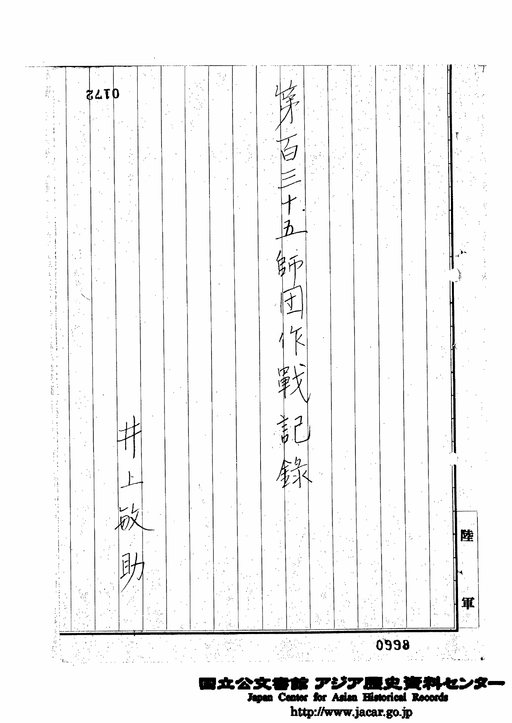 0172
第百三十五師団作戰記錄
井上敏助
陸軍
0998
国立公文書館 アジア歴史資料センター
Japan Center for Asian Historical Records
http://www.jacar.go.jp